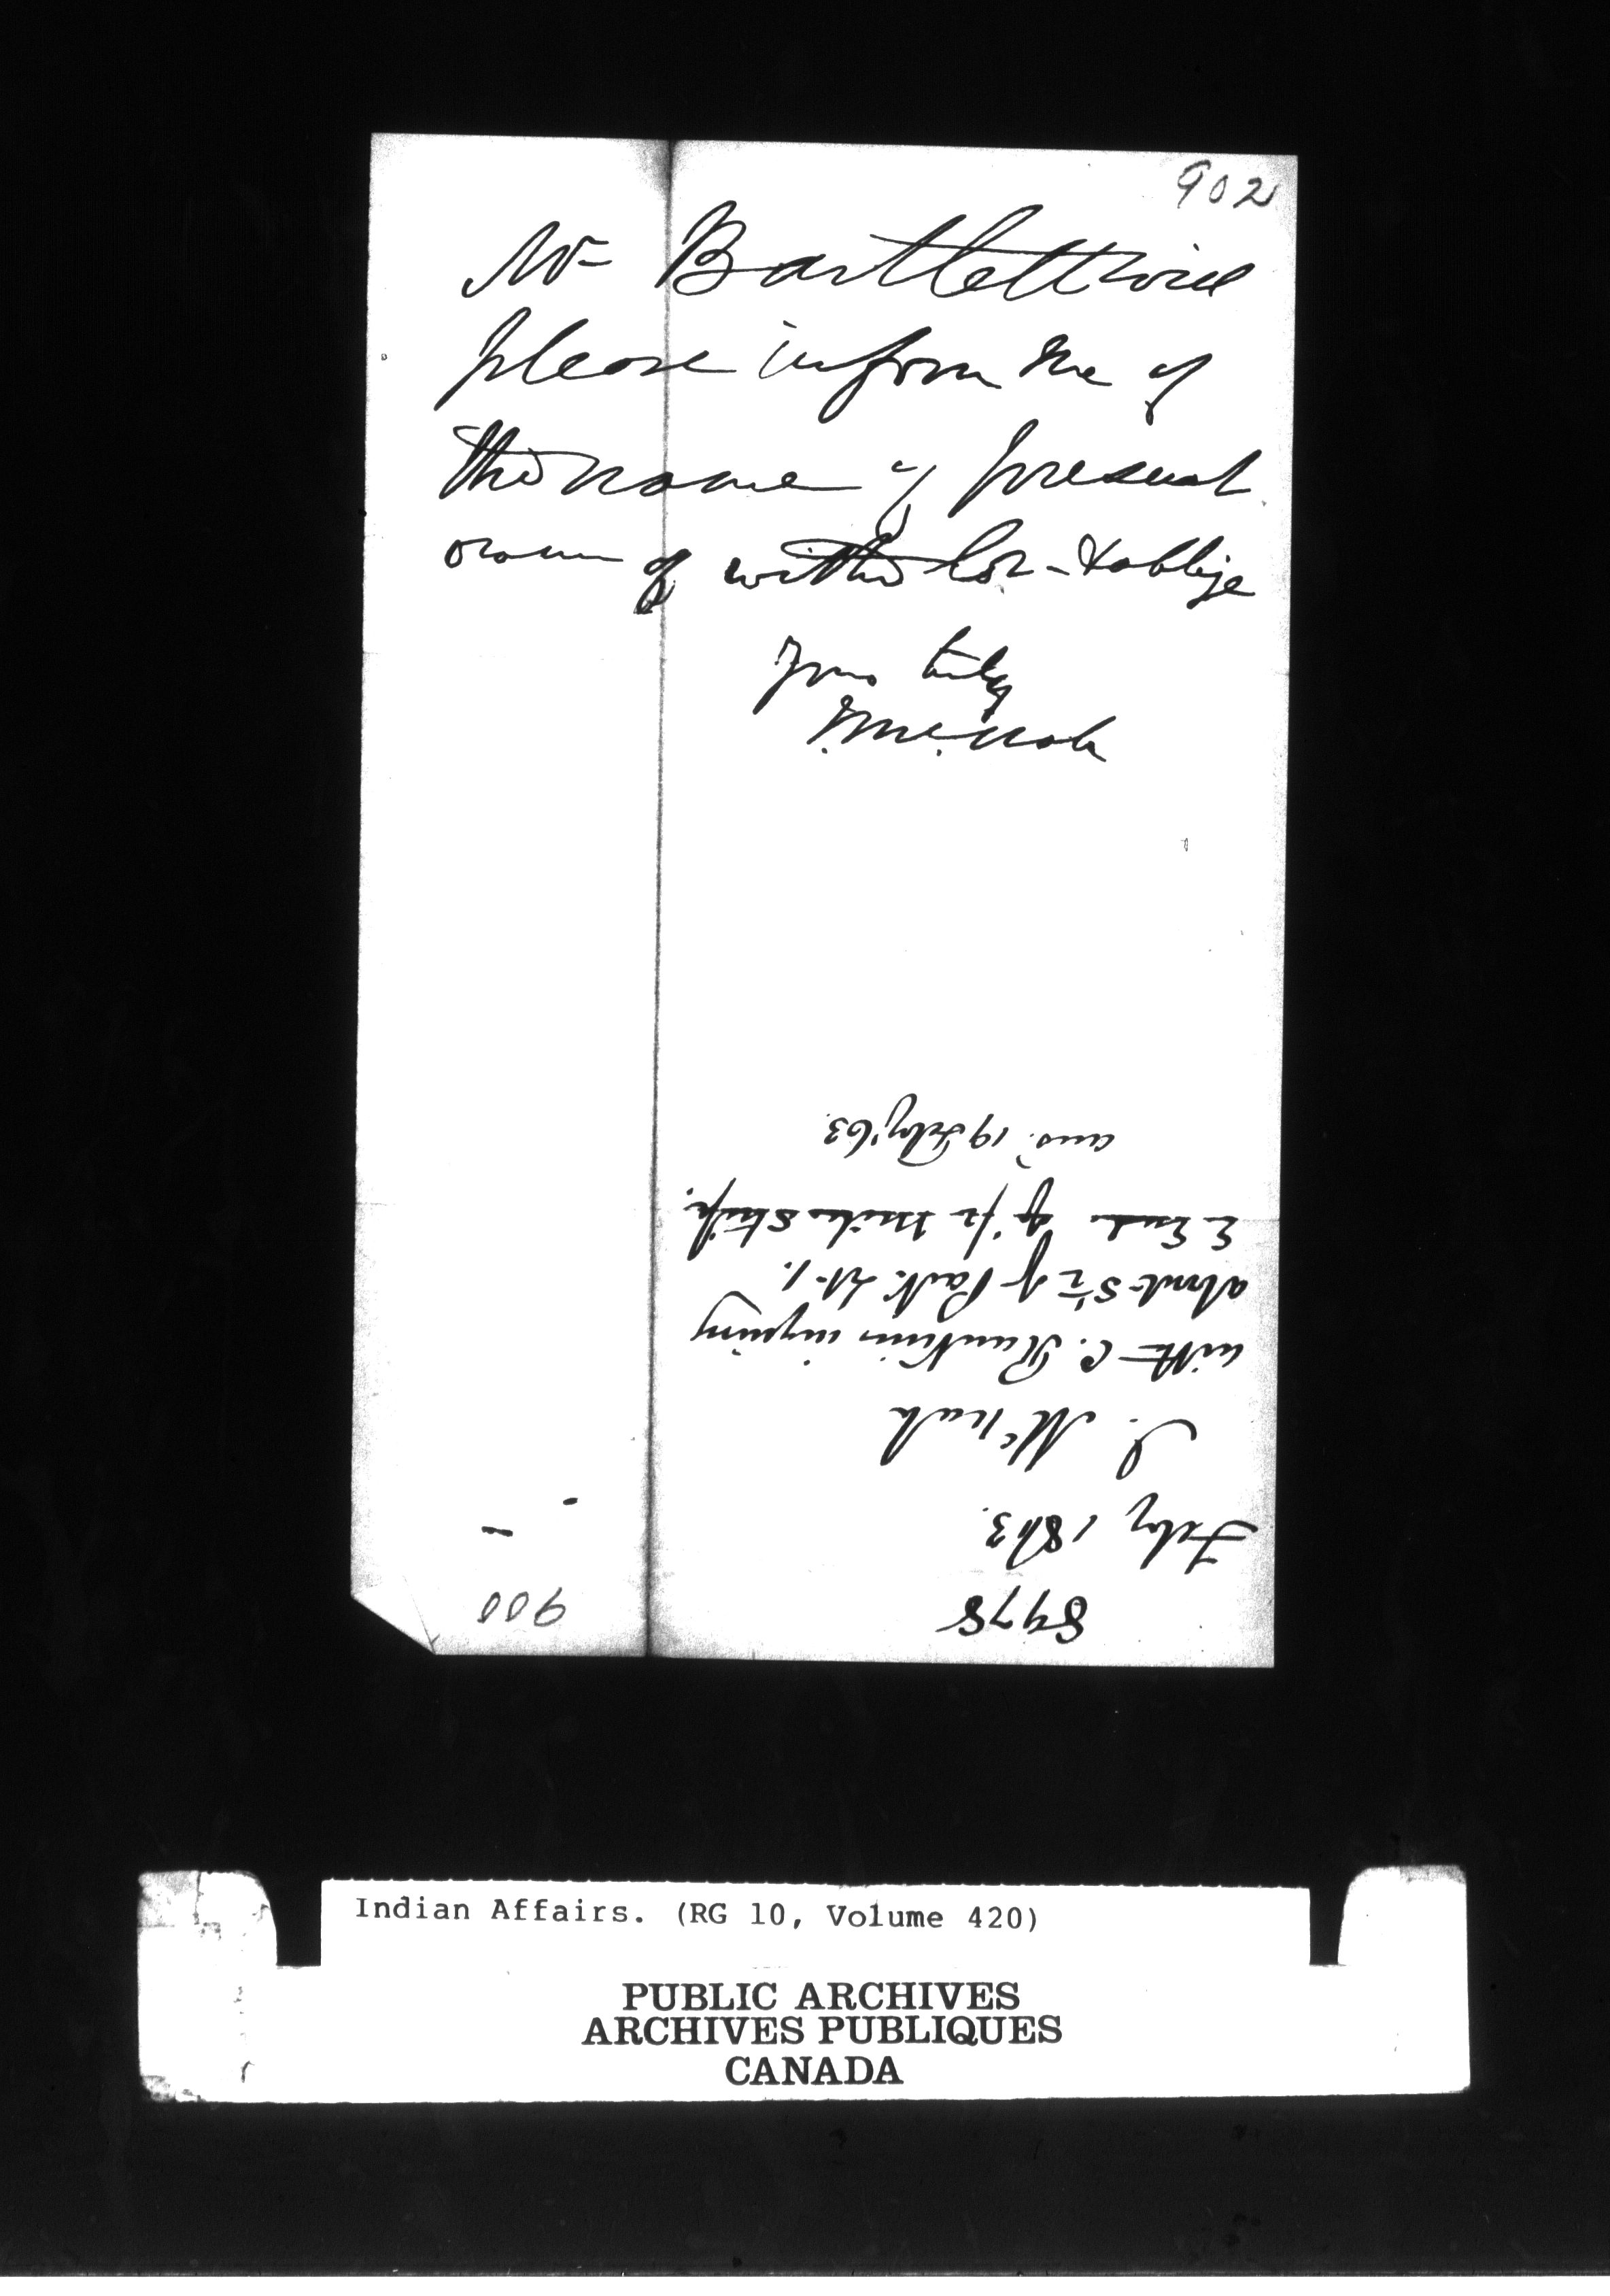 902
Mr Bartlett will
please inform me of
the name of present
owner of within lot - & oblige
Yours truly
J. McNab
8978
Feby 1863.
J. McNab
with C. Rankin's inquiry
about S ½ of Park Lt. 1.
E. End of ½ mile Strip.
ansd. 19 Feby '63.
900
Indian Affairs. (RG 10, Volume 420)
PUBLIC ARCHIVES
ARCHIVES PUBLIQUES
CANADA